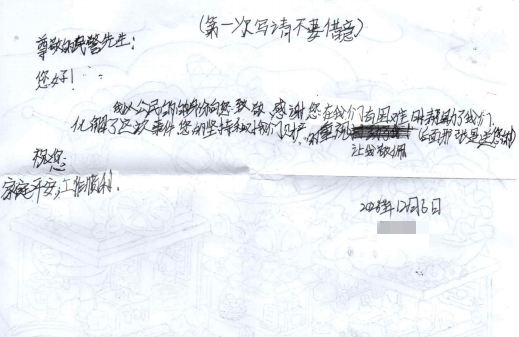 (第一次写请不要借意)
尊敬的民警先生:
您好!
我以公民的身份向您致敬,感谢您在我们有困难时帮助了我们,
化解了这次事件您的坚持和对我们财产的重视 后面那张是送您的
让我敬佩
祝您:
家庭平安,工作顺利.
2025年12月6日